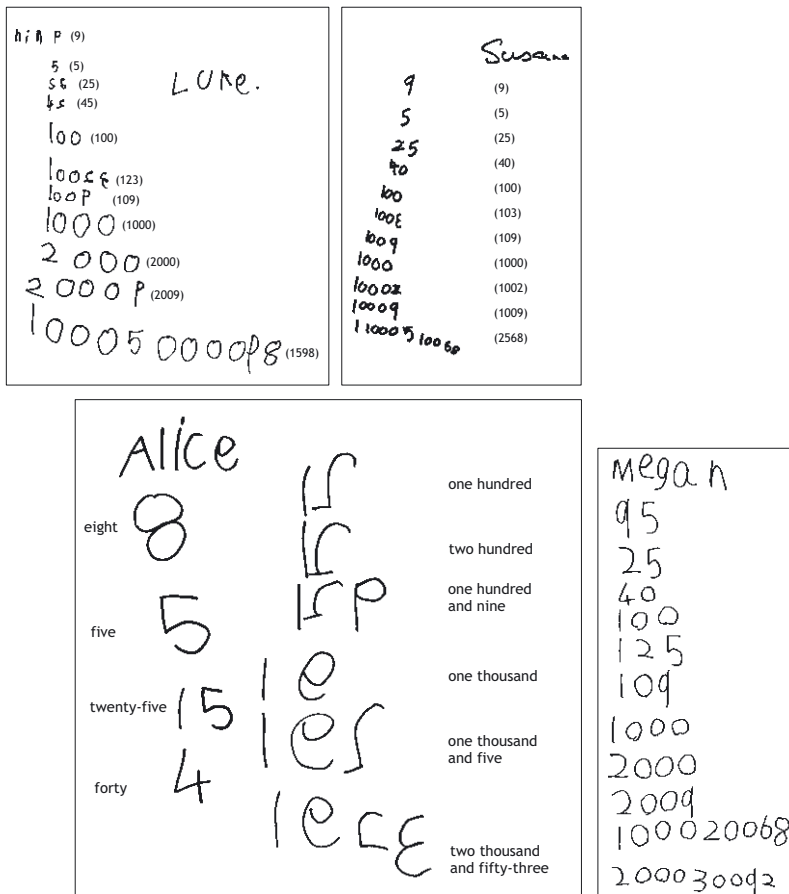 hin P (9)
LUKe.
5 (5)
25 (25)
45 (45)
100 (100)
10023 (123)
100P (109)
1000 (1000)
2000 (2000)
2000P (2009)
100050000P8 (1598)
Susanne
9 (9)
5 (5)
25 (25)
40 (40)
100 (100)
1003 (103)
1009 (109)
1000 (1000)
10002 (1002)
10009 (1009)
11000510068 (2568)
Alice
eight 8
five 5
twenty-five 15
forty 4
one hundred
two hundred
one hundred
and nine
one thousand
1e
one thousand
and five
two thousand
and fifty-three
Megan
95
25
40
100
125
109
1000
2000
2009
100020068
200030092